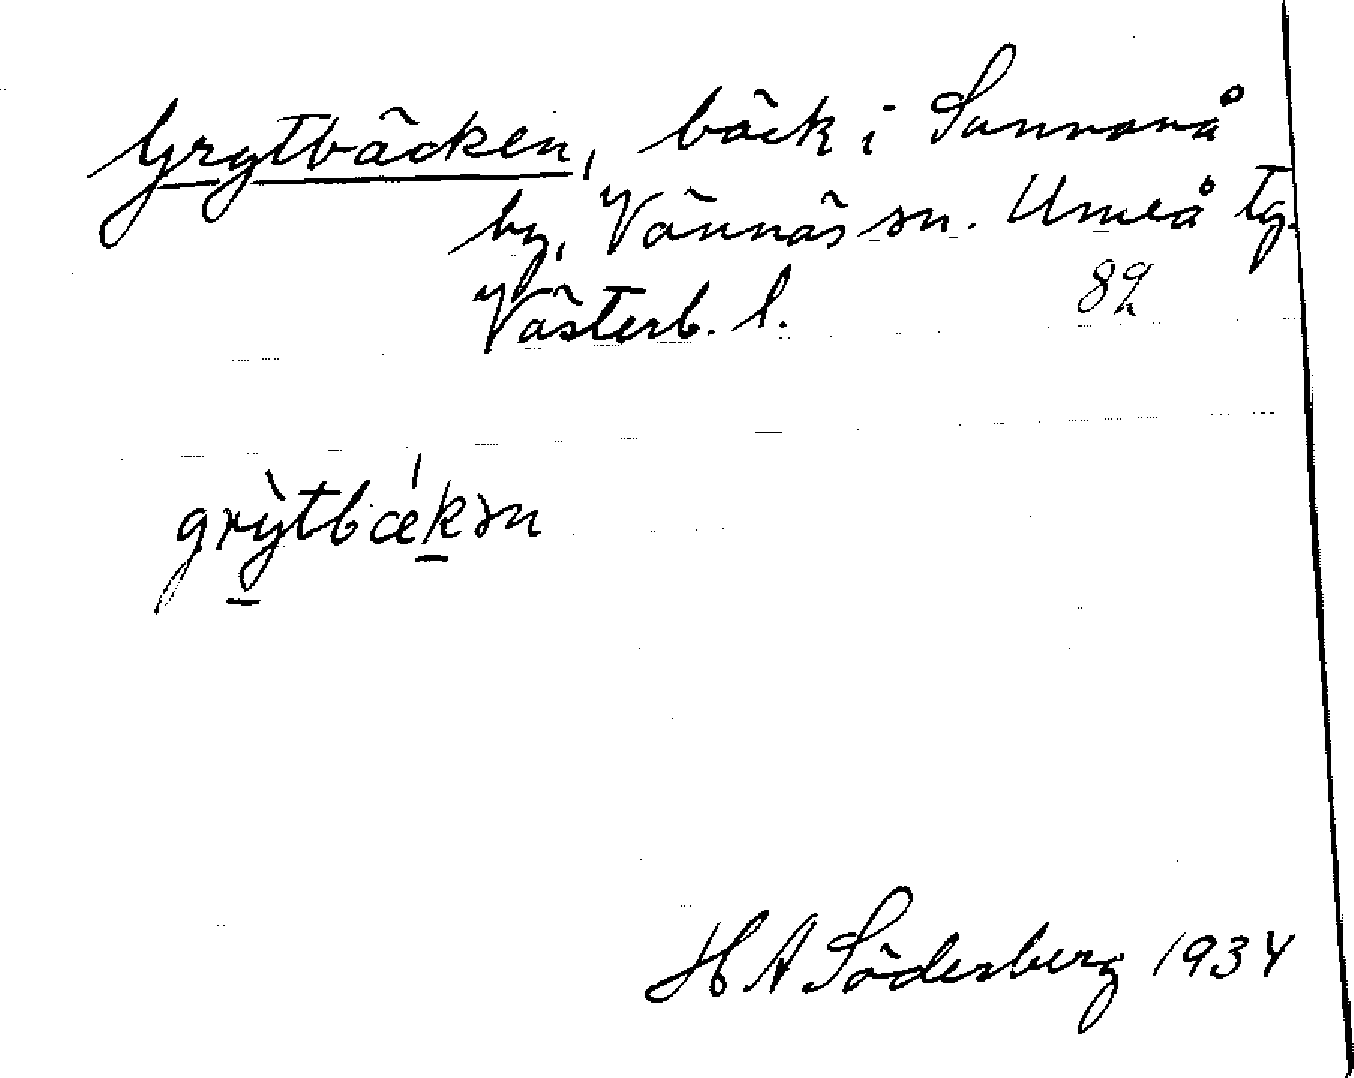 Grytbäcken, bäck i Sunnanå
by, Vännäs sn. Umeå tg.
Västerb. l. 82
grỳtbǽkən
H A Söderberg 1934